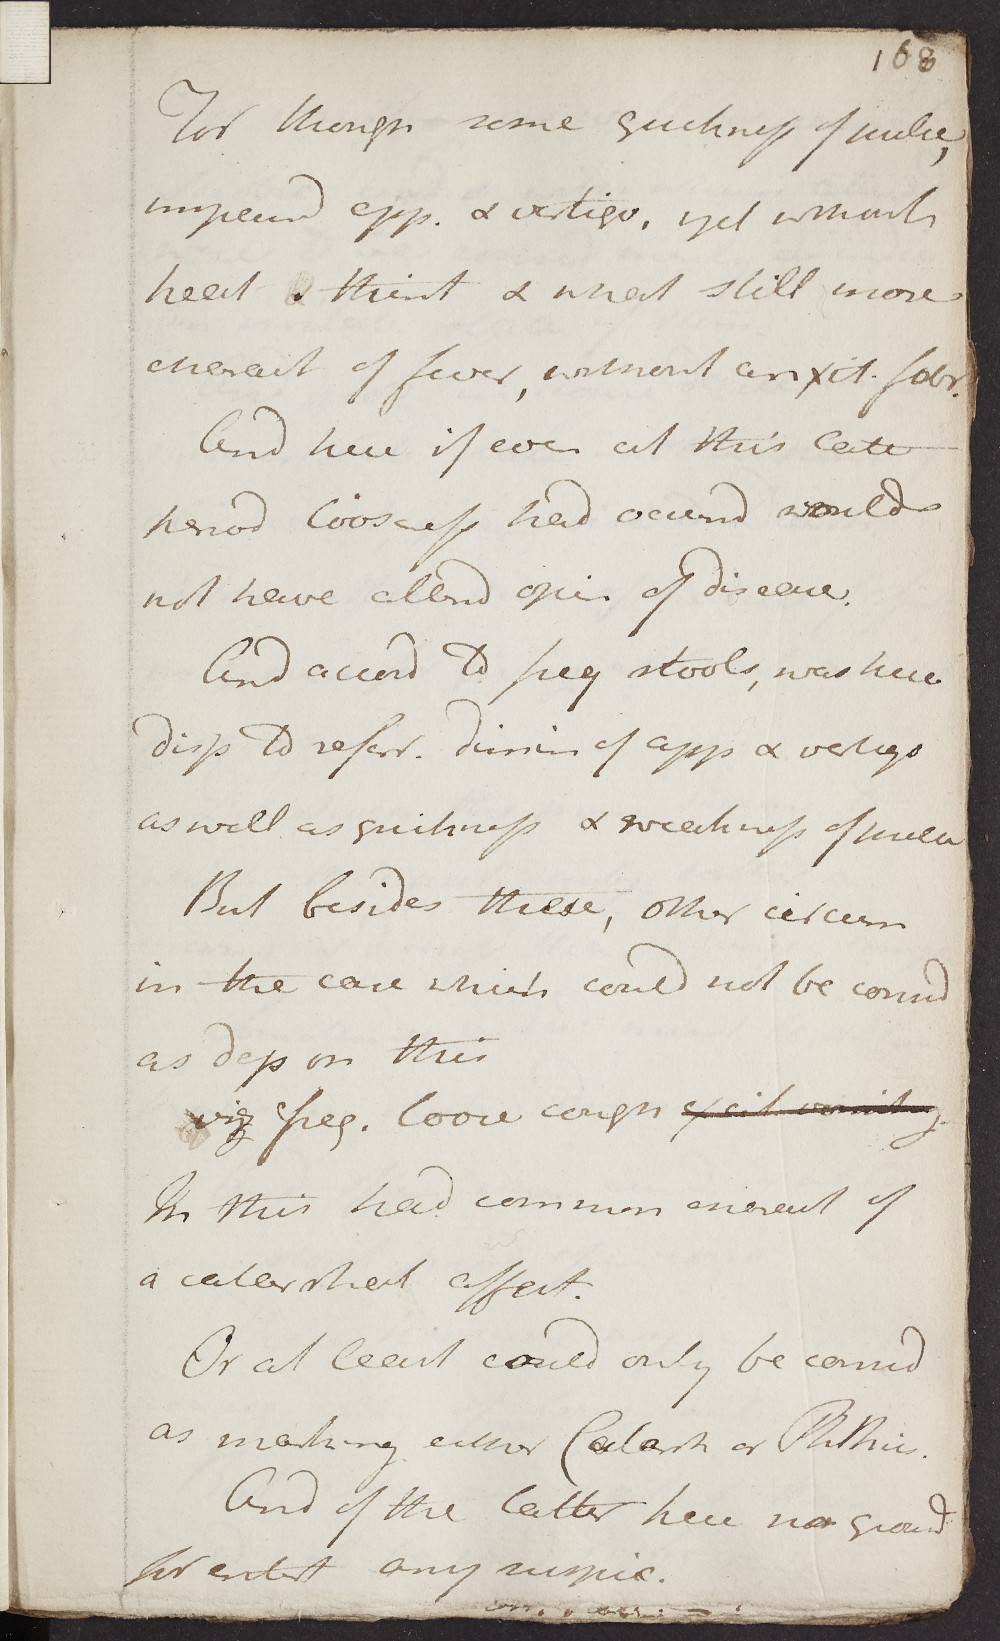 168
For though some quickness of pulse,
impaird app. & vertigo, yet without
heat & thirst & what still more
charact of fever, without anxit. febr.
And here if even at this late
period looseness had occurrd would
not have alterd opin of disease.
And accord to freq stools, was here
disp to referr. dimin of app & vertigo
as well as quickness & weakness of pulse
But besides these, other circum
in the case which could not be considd
as dep on this
viz freq. loose cough excit vomiting.
In this had common charact of
a catarrhal affect.
Or at least could only be considd
as marking either Catarrh or Phthisis.
And of the latter here no ground
for entert any suspic.